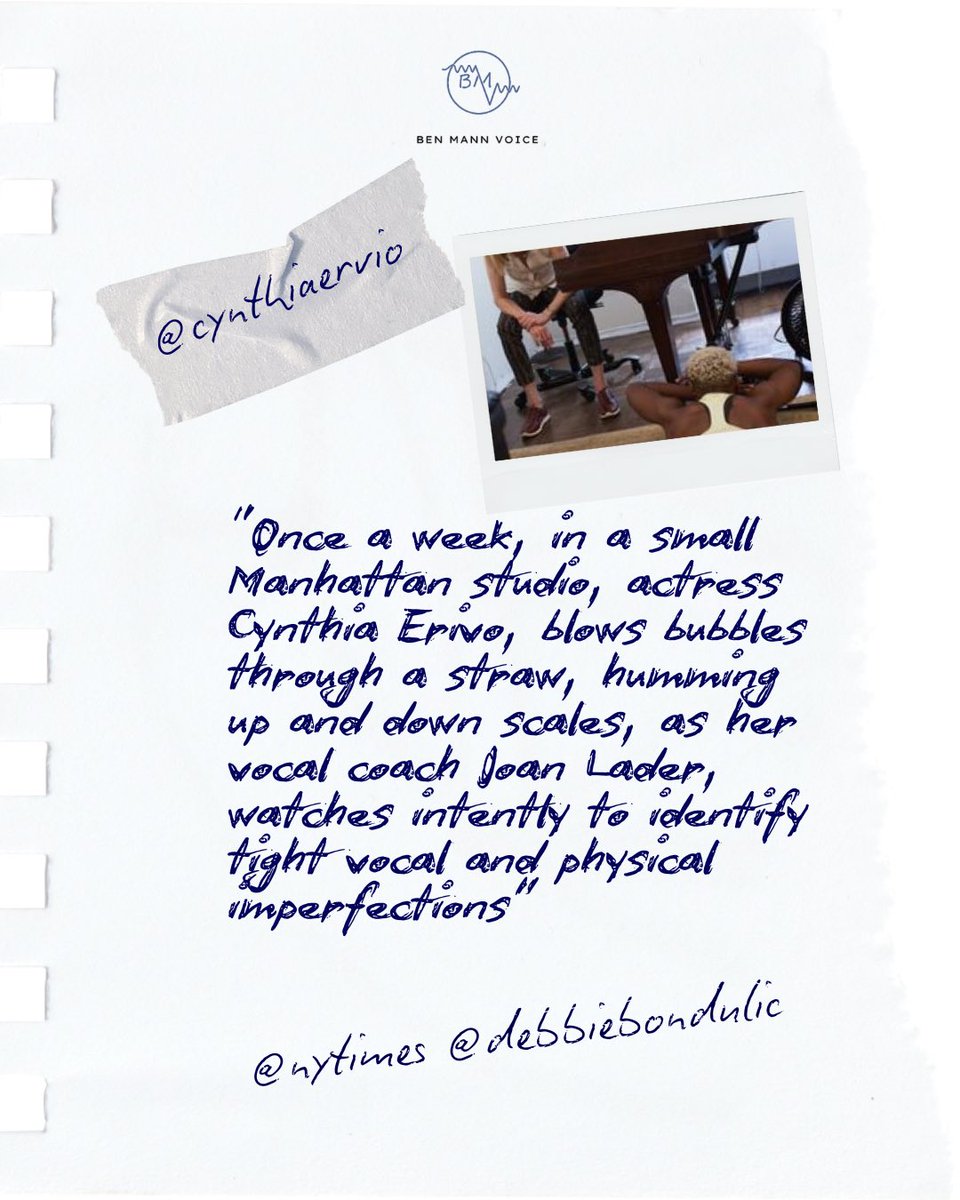 BM
BEN MANN VOICE
@cynthiaervio
"Once a week, in a small
Manhattan studio, actress
Cynthia Erivo, blows bubbles
through a straw, humming
up and down scales, as her
vocal coach Joan Lader,
watches intently to identify
tight vocal and physical
imperfections"
@nytimes @debbiebondulic